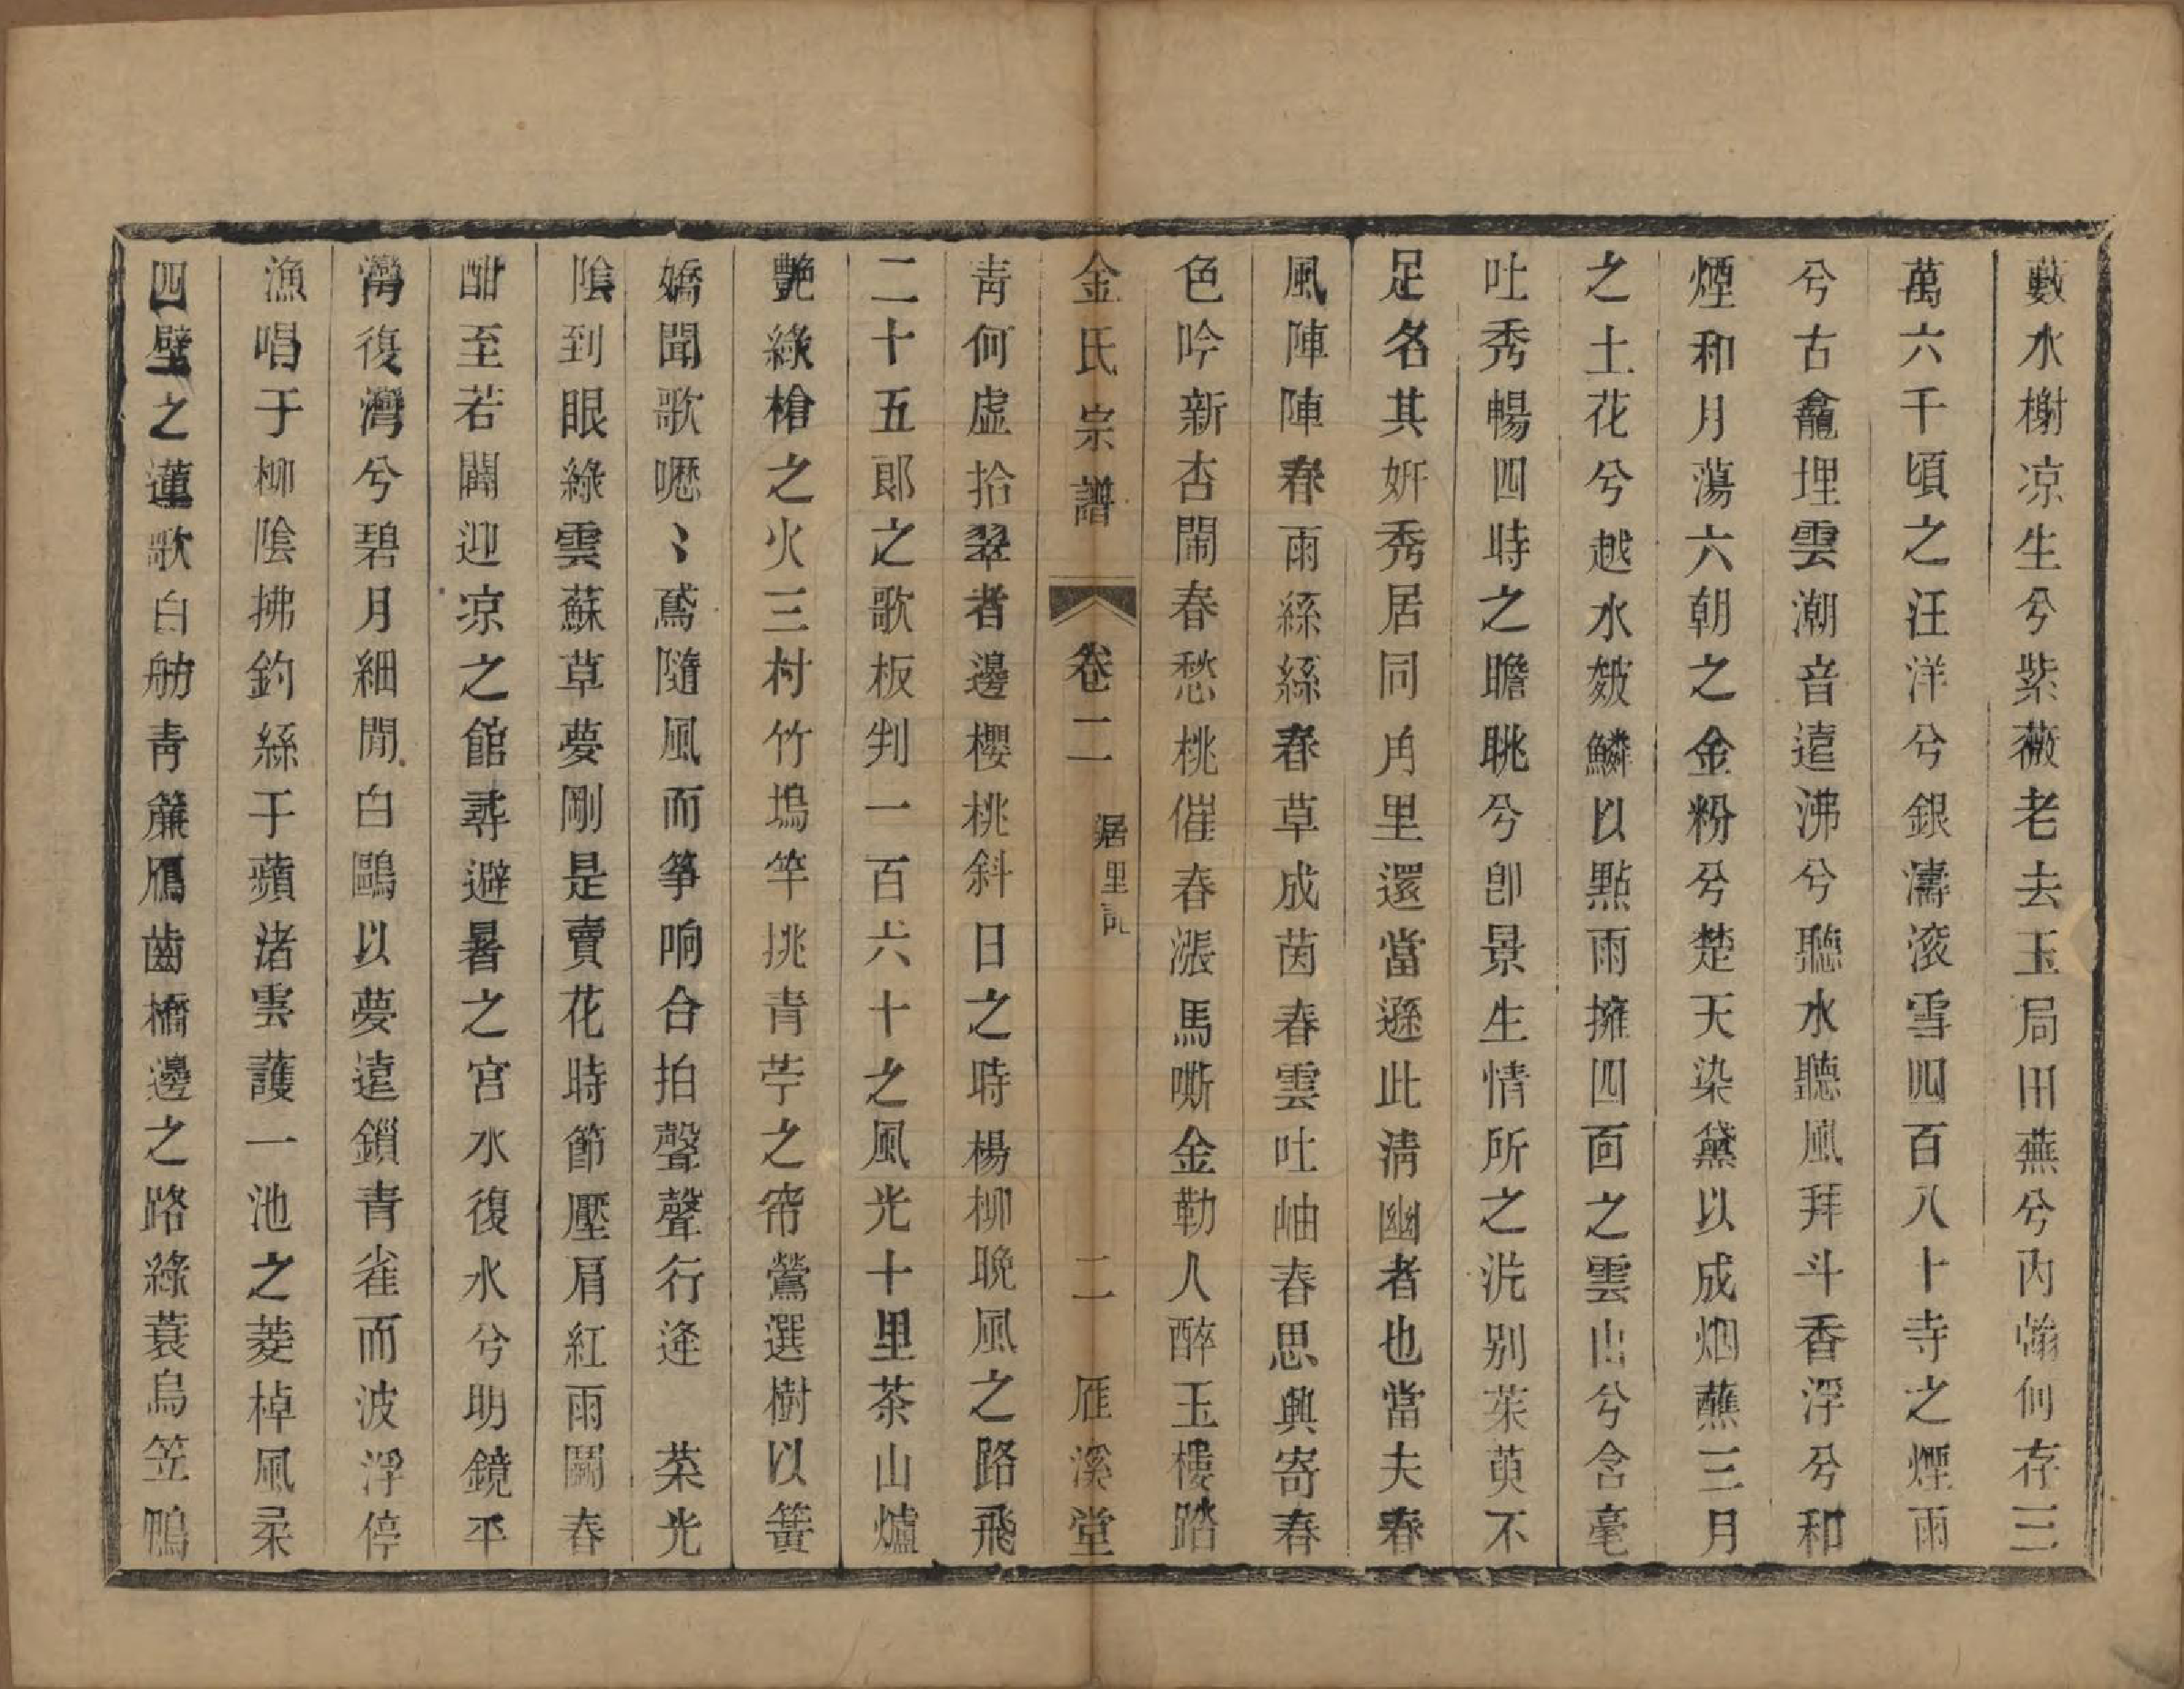 藪水榭凉生兮紫薇老去玉局田蕪兮內翰何存三
萬六千頃之汪洋兮銀濤滚雪四百八十寺之煙雨
兮古龕埋雲潮音遠沸兮聽水聽風拜斗香浮兮和
煙和月蕩六朝之金粉兮楚天染黛以成烟蘸三月
之土花兮越水皴鱗以點雨擁四面之雲山兮含毫
吐秀暢四時之瞻眺兮卽景生情所之洗别茱萸不
足名其妍秀居同甪里還當遜此淸幽者也當夫春
風陣陣春雨絲絲春草成茵春雲吐岫春思興寄春
色吟新杏鬧春愁桃催春漲馬嘶金勒人醉玉樓踏
金氏宗譜 卷二 居里記 二 雁溪堂
靑何處拾翠者邊櫻桃斜日之時楊柳晚風之路飛
二十五郎之歌板判一百六十之風光十里茶山爐
艷綠槍之火三村竹塢竿挑青苧之帘鶯選樹以簧
嬌聞歌嚦〻鳶隨風而箏响合拍聲聲行逢 菜光
陰到眼綠雲蘇草夢剛是賣花時節壓肩紅雨鬭春
酣至若闢迎凉之館尋避暑之宮水復水兮明鏡平
灣復灣兮碧月細閒白鷗以夢遠鎖青雀而波浮停
漁唱于柳陰拂釣絲于蘋渚雲護一池之菱棹風柔
四壁之蓮歌白舫靑簾鴈齒橋邊之路綠蓑烏笠鴨